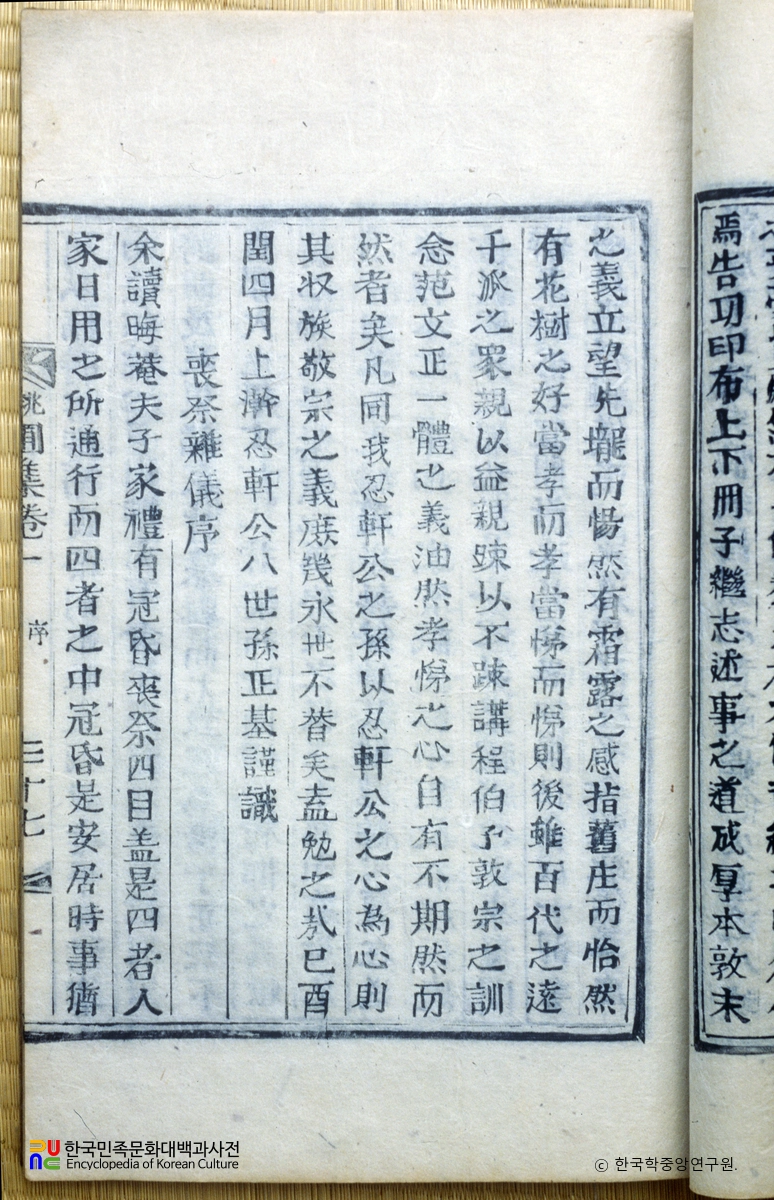 焉告功印布上下冊子繼志述事之道成厚本敦末
之義立望先壠而愓然有霜露之感指舊庄而怡然
有花樹之好當孝而孝當悌而悌則後雖百代之遠
千派之衆親以益親踈以不踈講程伯子敦宗之訓
念范文正一體之義油然孝悌之心自有不期然而
然者矣凡同我忍軒公之孫以忍軒公之心為心則
其収族敬宗之義庶幾永世不替矣盍勉之哉己酉
閏四月上澣忍軒公八世孫正基謹識
喪祭雜儀序
余讀晦菴夫子家禮有冠昏喪祭四目盖是四者人
家日用之所通行而四者之中冠昏是安居時事猶
集卷一 序 三十七
한국민족문화대백과사전
Encyclopedia of Korean Culture
© 한국학중앙연구원.